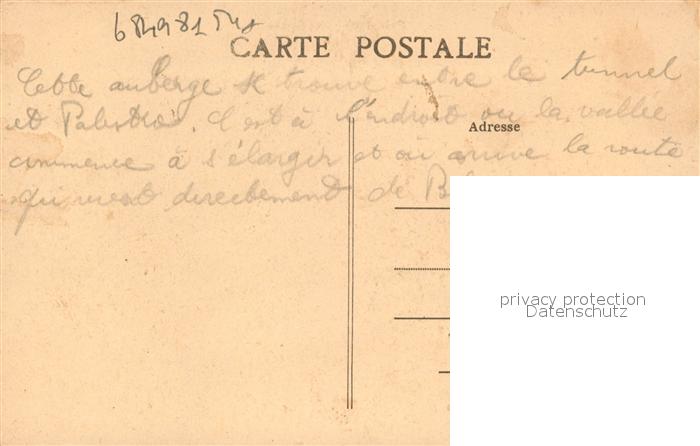 CARTE POSTALE
Cette auberge se trouve entre le tunnel
et Palestro. C'est à l'endroit ou la vallée
Adresse
commence à s'élargir et où arrive la route
qui vient directement de
privacy protection
Datenschutz